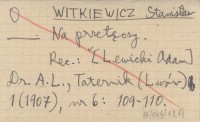 WITKIEWICZ Stanisław
Na przełęczy.
Rec.: [Lewicki Adam]
Dr. A.L., Taternik (Lwów)
1(1907), nr 6: 109-110.